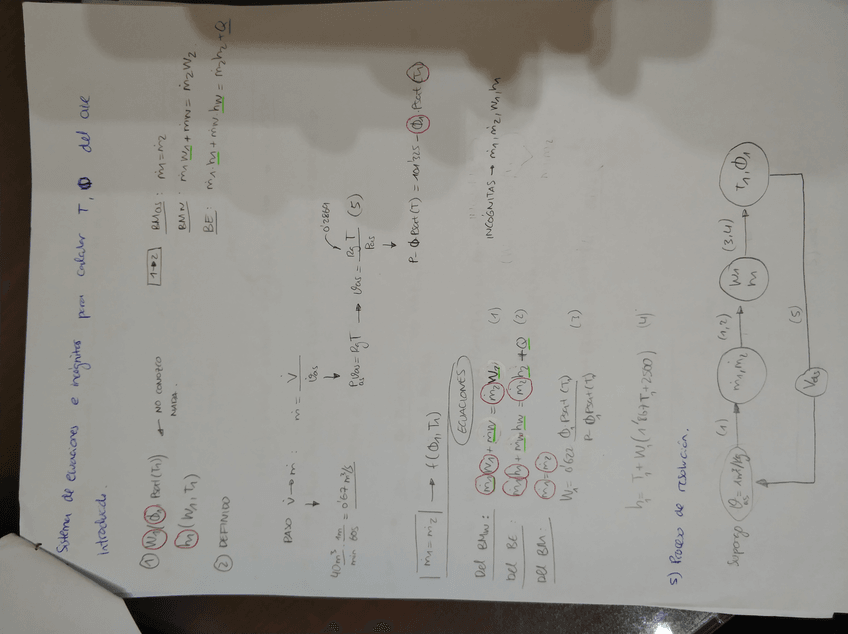 Sistema de ecuaciones e incógnitas para calcular T, Φ del aire
introducido.
① W1(Φ1 Psat(T1)) ← NO CONOZCO
NADA.
h1(W1, T1)
② DEFINIDO
1→2
BMas: ṁ1=ṁ2
BMW: ṁ1W1+ṁW=ṁ2W2
BE: ṁ1h1+ṁW hW=ṁ2h2+Q
PASO V̇→ṁ: ṁ = V̇ / Vas
40 m³/min · m/60s = 0'67 m³/s
P Vas = Rg T → Vas = Rg T / Pas (5)
as
0'2869
P-Φ Psat(T) = 101'325 - Φ1 Psat(T1)
ṁ1=ṁ2 → f(Φ1, T1)
ECUACIONES
Del BMW: ṁ1W1+ṁW=ṁ2W2 (1)
Del BE: ṁ1h1+ṁWhW=ṁ2h2+Q (2)
Del BM: ṁ1=ṁ2
INCÓGNITAS → ṁ1, ṁ2, W1, h1
W1=0'622 Φ1 Psat(T1) / P-Φ1 Psat(T1) (3)
h1= T1+W1(1'867T1+2500) (4)
5) Proceso de resolución.
Supongo
(1)
ṁ1, ṁ2
(1,2)
W1
h1
(3,4)
T1, Φ1
(5)
Vas